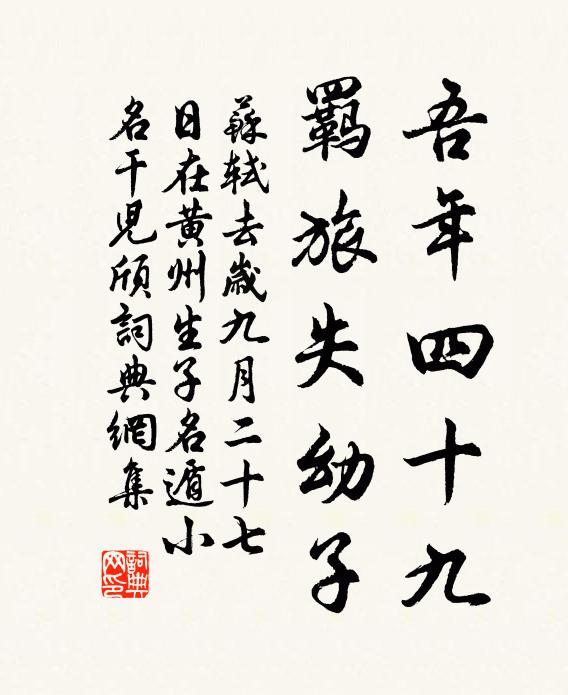 吾年四十九
羇旅失幼子
蘇軾去歲九月二十七
日在黃州生子名遁小
名干兒頎詞典網集
詞典
网印